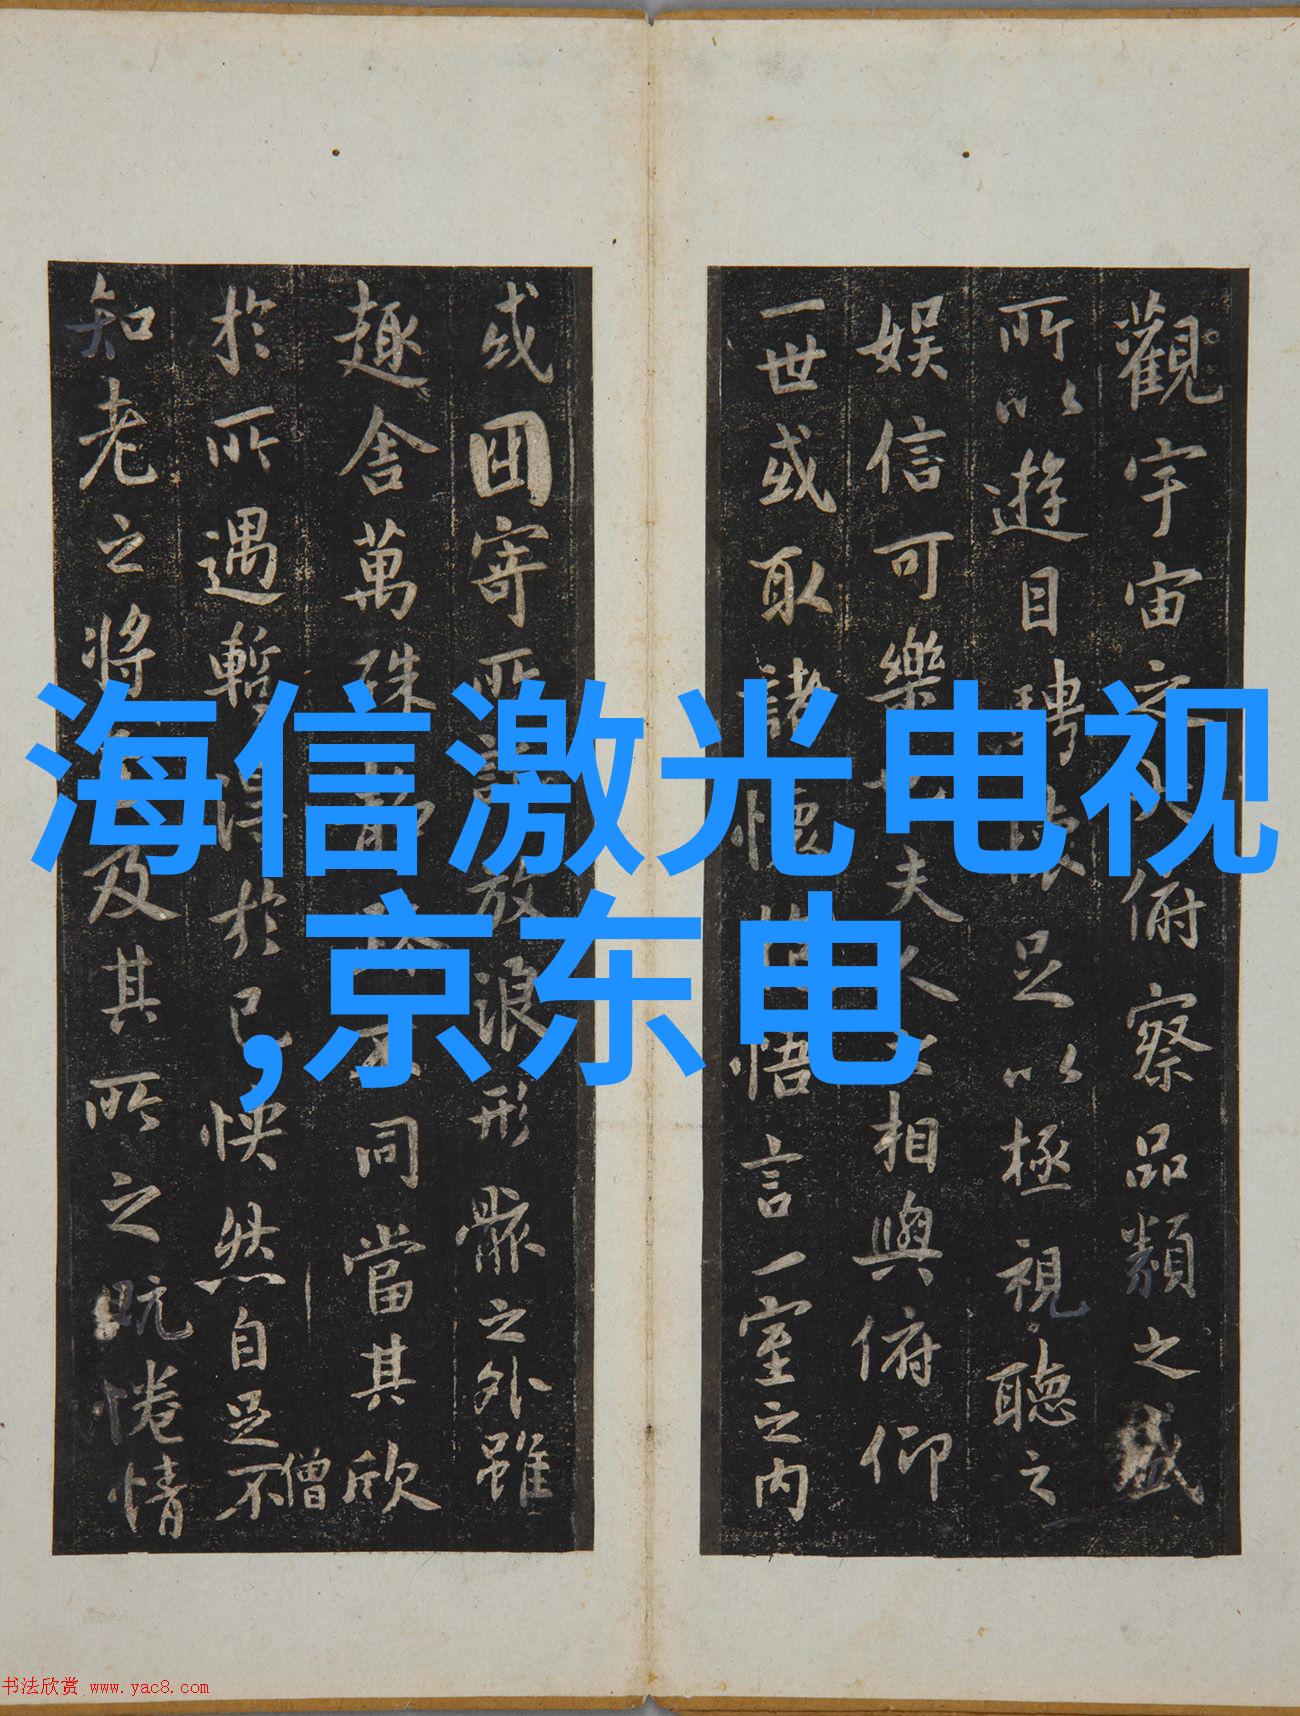 海信激光电视
,京东电
觀宇宙之大俯察品類之盛
所以遊目騁懷足以極視聽之
娱信可樂也夫人之相與俯仰
一世或取諸懷抱悟言一室之内
或因寄所託放浪形骸之外雖
趣舍萬殊静躁不同當其欣
於所遇暫得於己怏然自足不
僧
知老之將至及其所之既惓情
书法欣赏 www.yac8.com